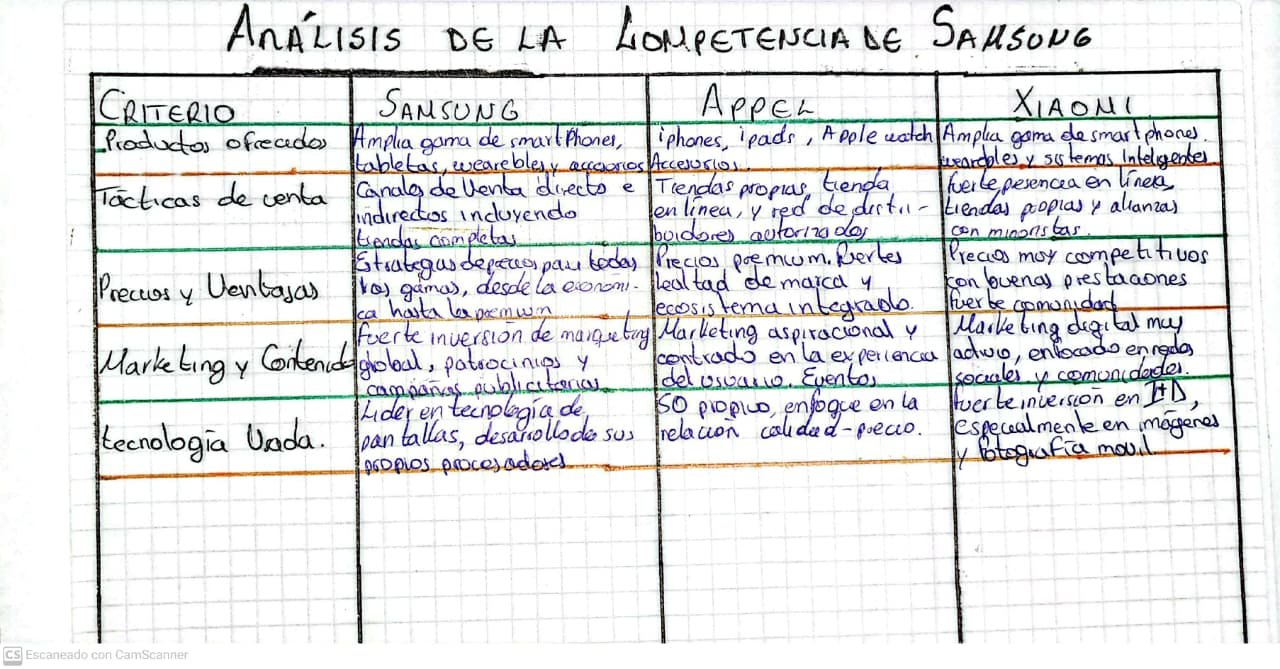 ANÁLISIS DE LA COMPETENCIA DE SAMSUNG
CRITERIO
SAMSUNG
APPEL
XIAOMI
Productos ofrecidos
Amplia gama de smartPhones,
tabletas, wearebles, y accesorios
iphones, ipads, Apple watch
Accesorios.
Amplia gama de smartphones.
wearables y sistemas inteligentes
Tácticas de venta
Canales de Venta directo e
indirectos incluyendo
tiendas completas
Tiendas propias, tienda
en línea, y red de distri-
buidores autorizados
fuerte presencia en línea,
tiendas propias y alianzas
con minoristas.
Precios y Ventajas
Estrategias de precios para todas
las gamas, desde la economi-
ca hasta la premium
Precios premium. Fuertes
lealtad de marca y
ecosistema integrado.
Precios muy competitivos
con buenas prestaciones
fuerte comunidad
Marketing y Contenido
fuerte inversión de marqueting
global, patrocinios y
campañas publicitarias
Marketing aspiracional y
contrado en la experiencia
del usuario. Eventos
Marketing digital muy
activo, enfocado en redes
sociales y comunidades.
tecnología Usada.
Lider en tecnología de
pantallas, desarrollo de sus
propios procesadores
SO propico, enfoque en la
relación calidad-precio.
fuerte inversión en I+D,
especialmente en imágenes
y fotografía movil
CS Escaneado con CamScanner